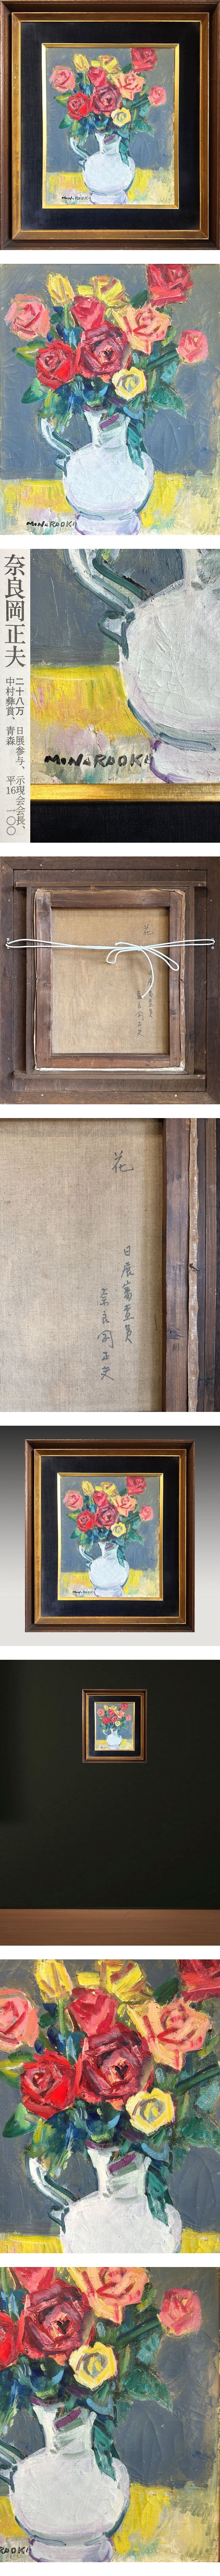 M.NARAOKA
M.NARAOKA
奈良岡正夫
二十八万 日展参与、示現会会長、
中村彝賞、青森 平16 一〇〇
M.NARAOKA
花
日展審査員
奈良岡正夫
花
日展審査員
奈良岡正夫
M.NARAOKA
RAOKA